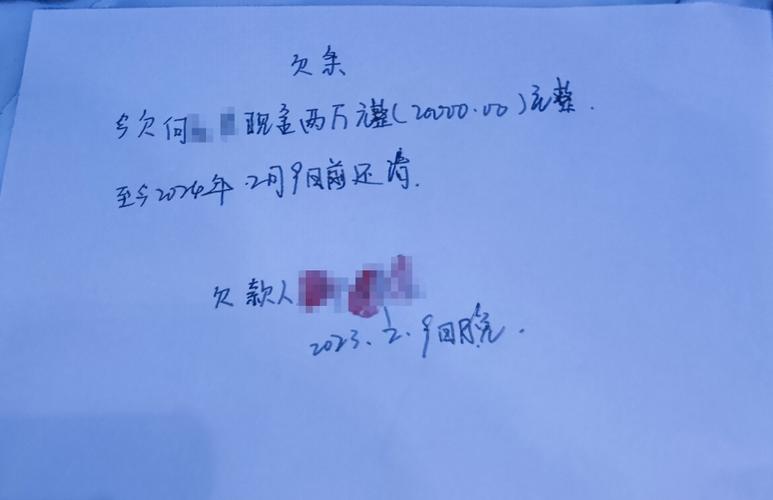 欠条
今欠何 现金两万元整(20000.00)元整.
至今2024年.2月9日前还清.
欠款人
2023.2.9日晚.